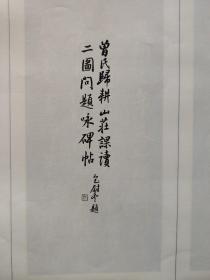 曾氏歸耕山莊課讀
二圖問題咏碑帖